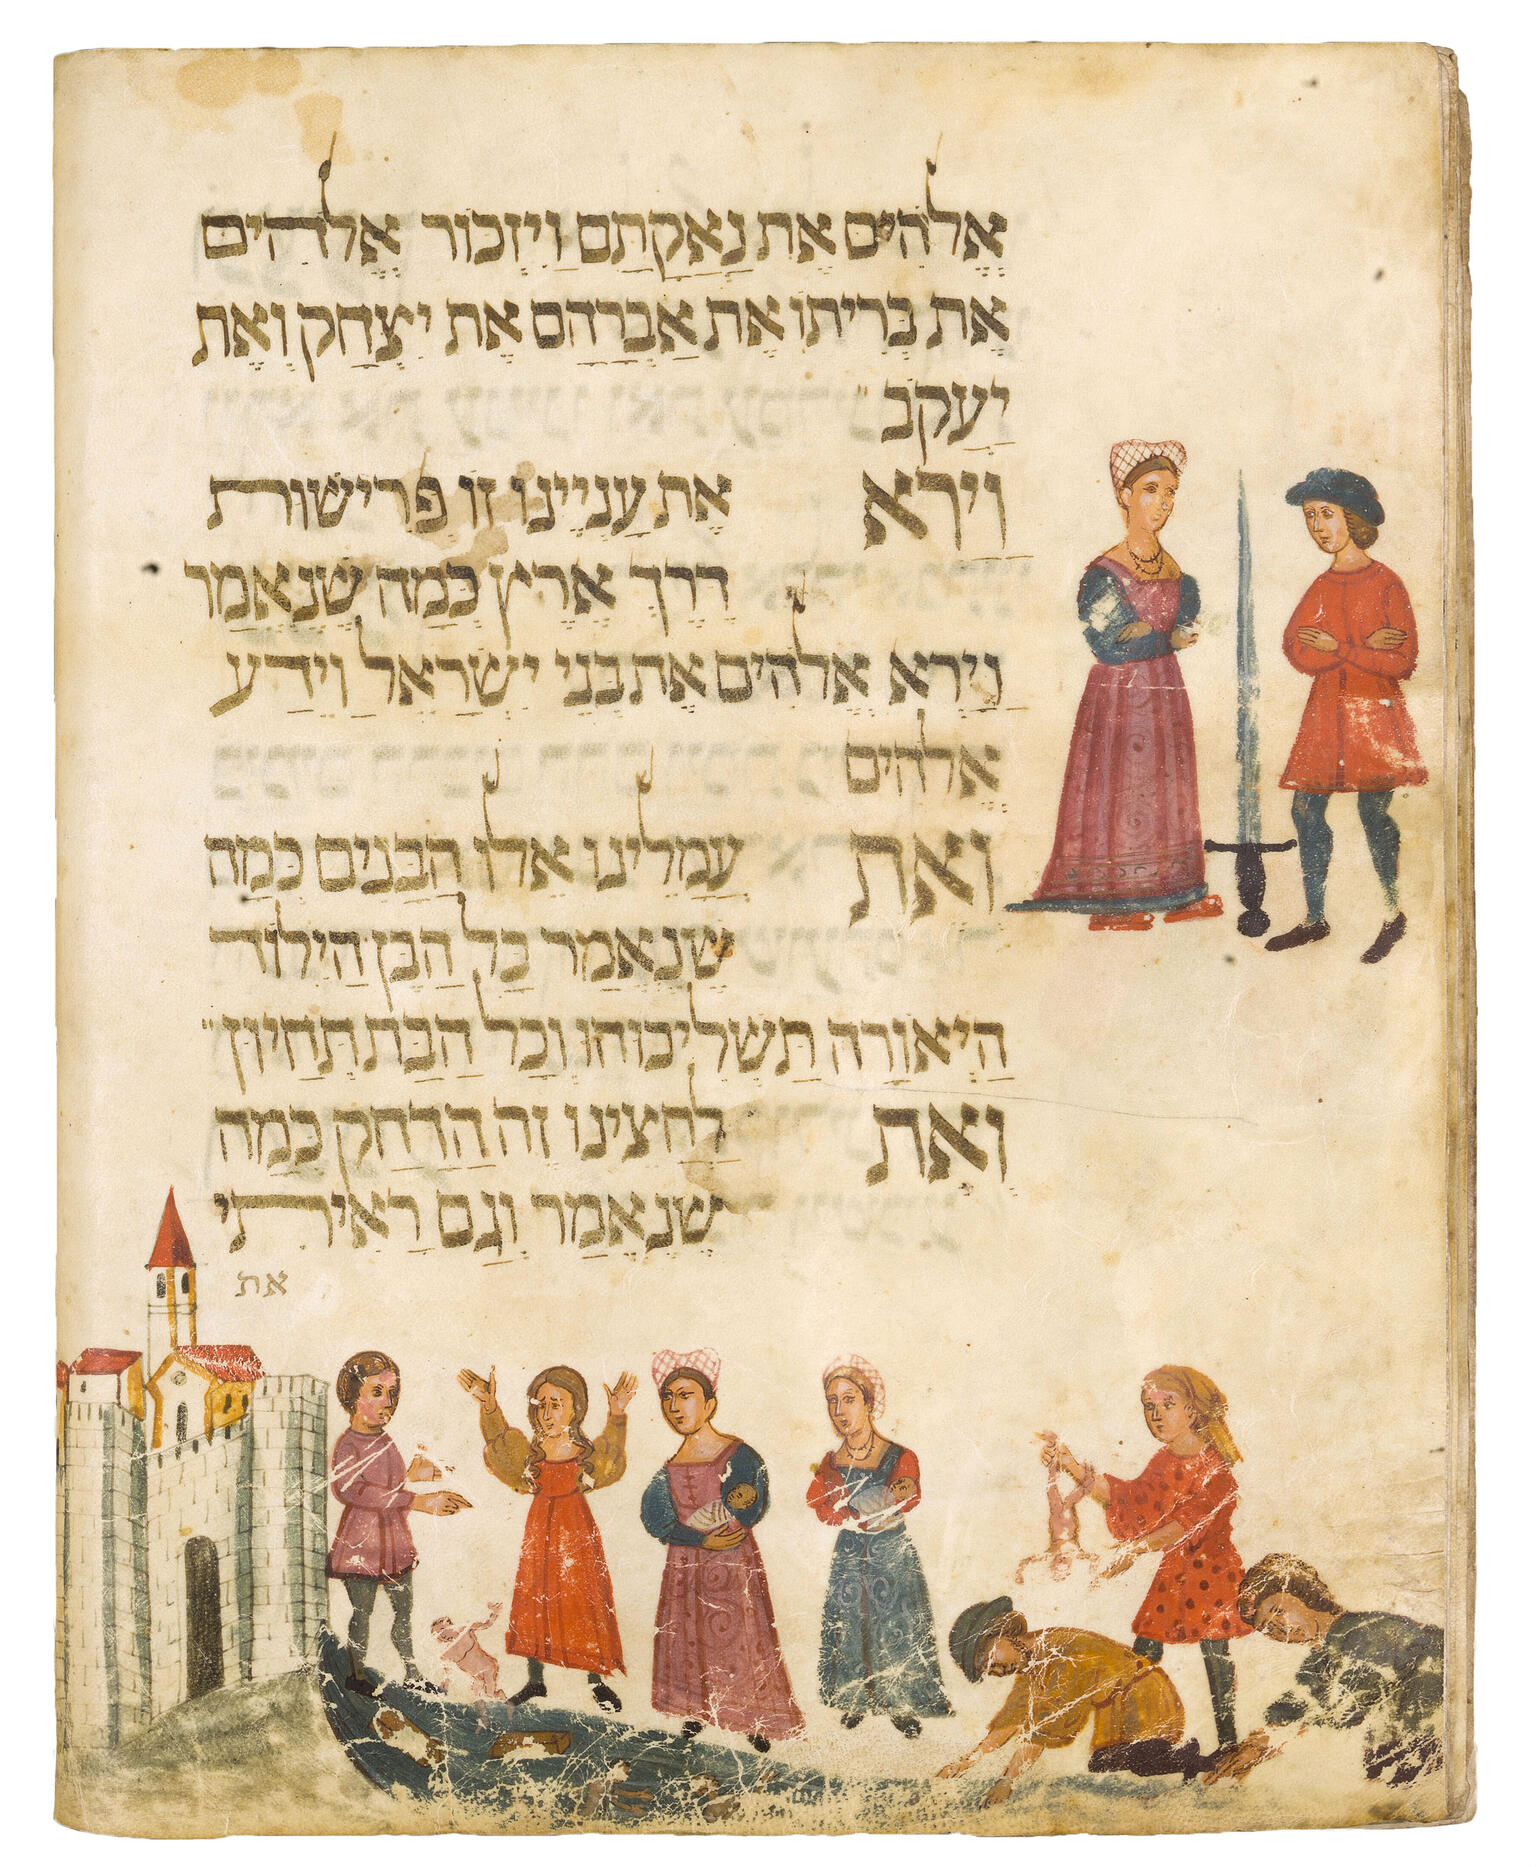 אֱלֹהִים אֶת נַאֲקָתָם וַיִּזְכּוֹר אֱלֹהִים
אֶת בְּרִיתוֹ אֶת אַבְרָהָם אֶת יִצְחָק וְאֶת
יַעֲקֹב
וַיַּרְא אֶת עָנְיֵינוּ זוֹ פְּרִישׁוּת
דֶּרֶךְ אֶרֶץ כְּמָה שֶׁנֶּאֱמַר
וַיַּרְא אֱלֹהִים אֶת בְּנֵי יִשְׂרָאֵל וַיֵּדַע
אֱלֹהִים
וְאֶת עֲמָלֵינוּ אֵלוּ הַבָּנִים כְּמָה
שֶׁנֶּאֱמַר כָּל הַבֵּן הַיִּלּוֹד
הַיְאוֹרָה תַּשְׁלִיכוּהוּ וְכָל הַבַּת תְּחַיּוּן
וְאֶת לַחֲצֵינוּ זֶה הַדְּחָק כְּמָה
שֶׁנֶּאֱמַר וְגַם רָאִיתִי
את